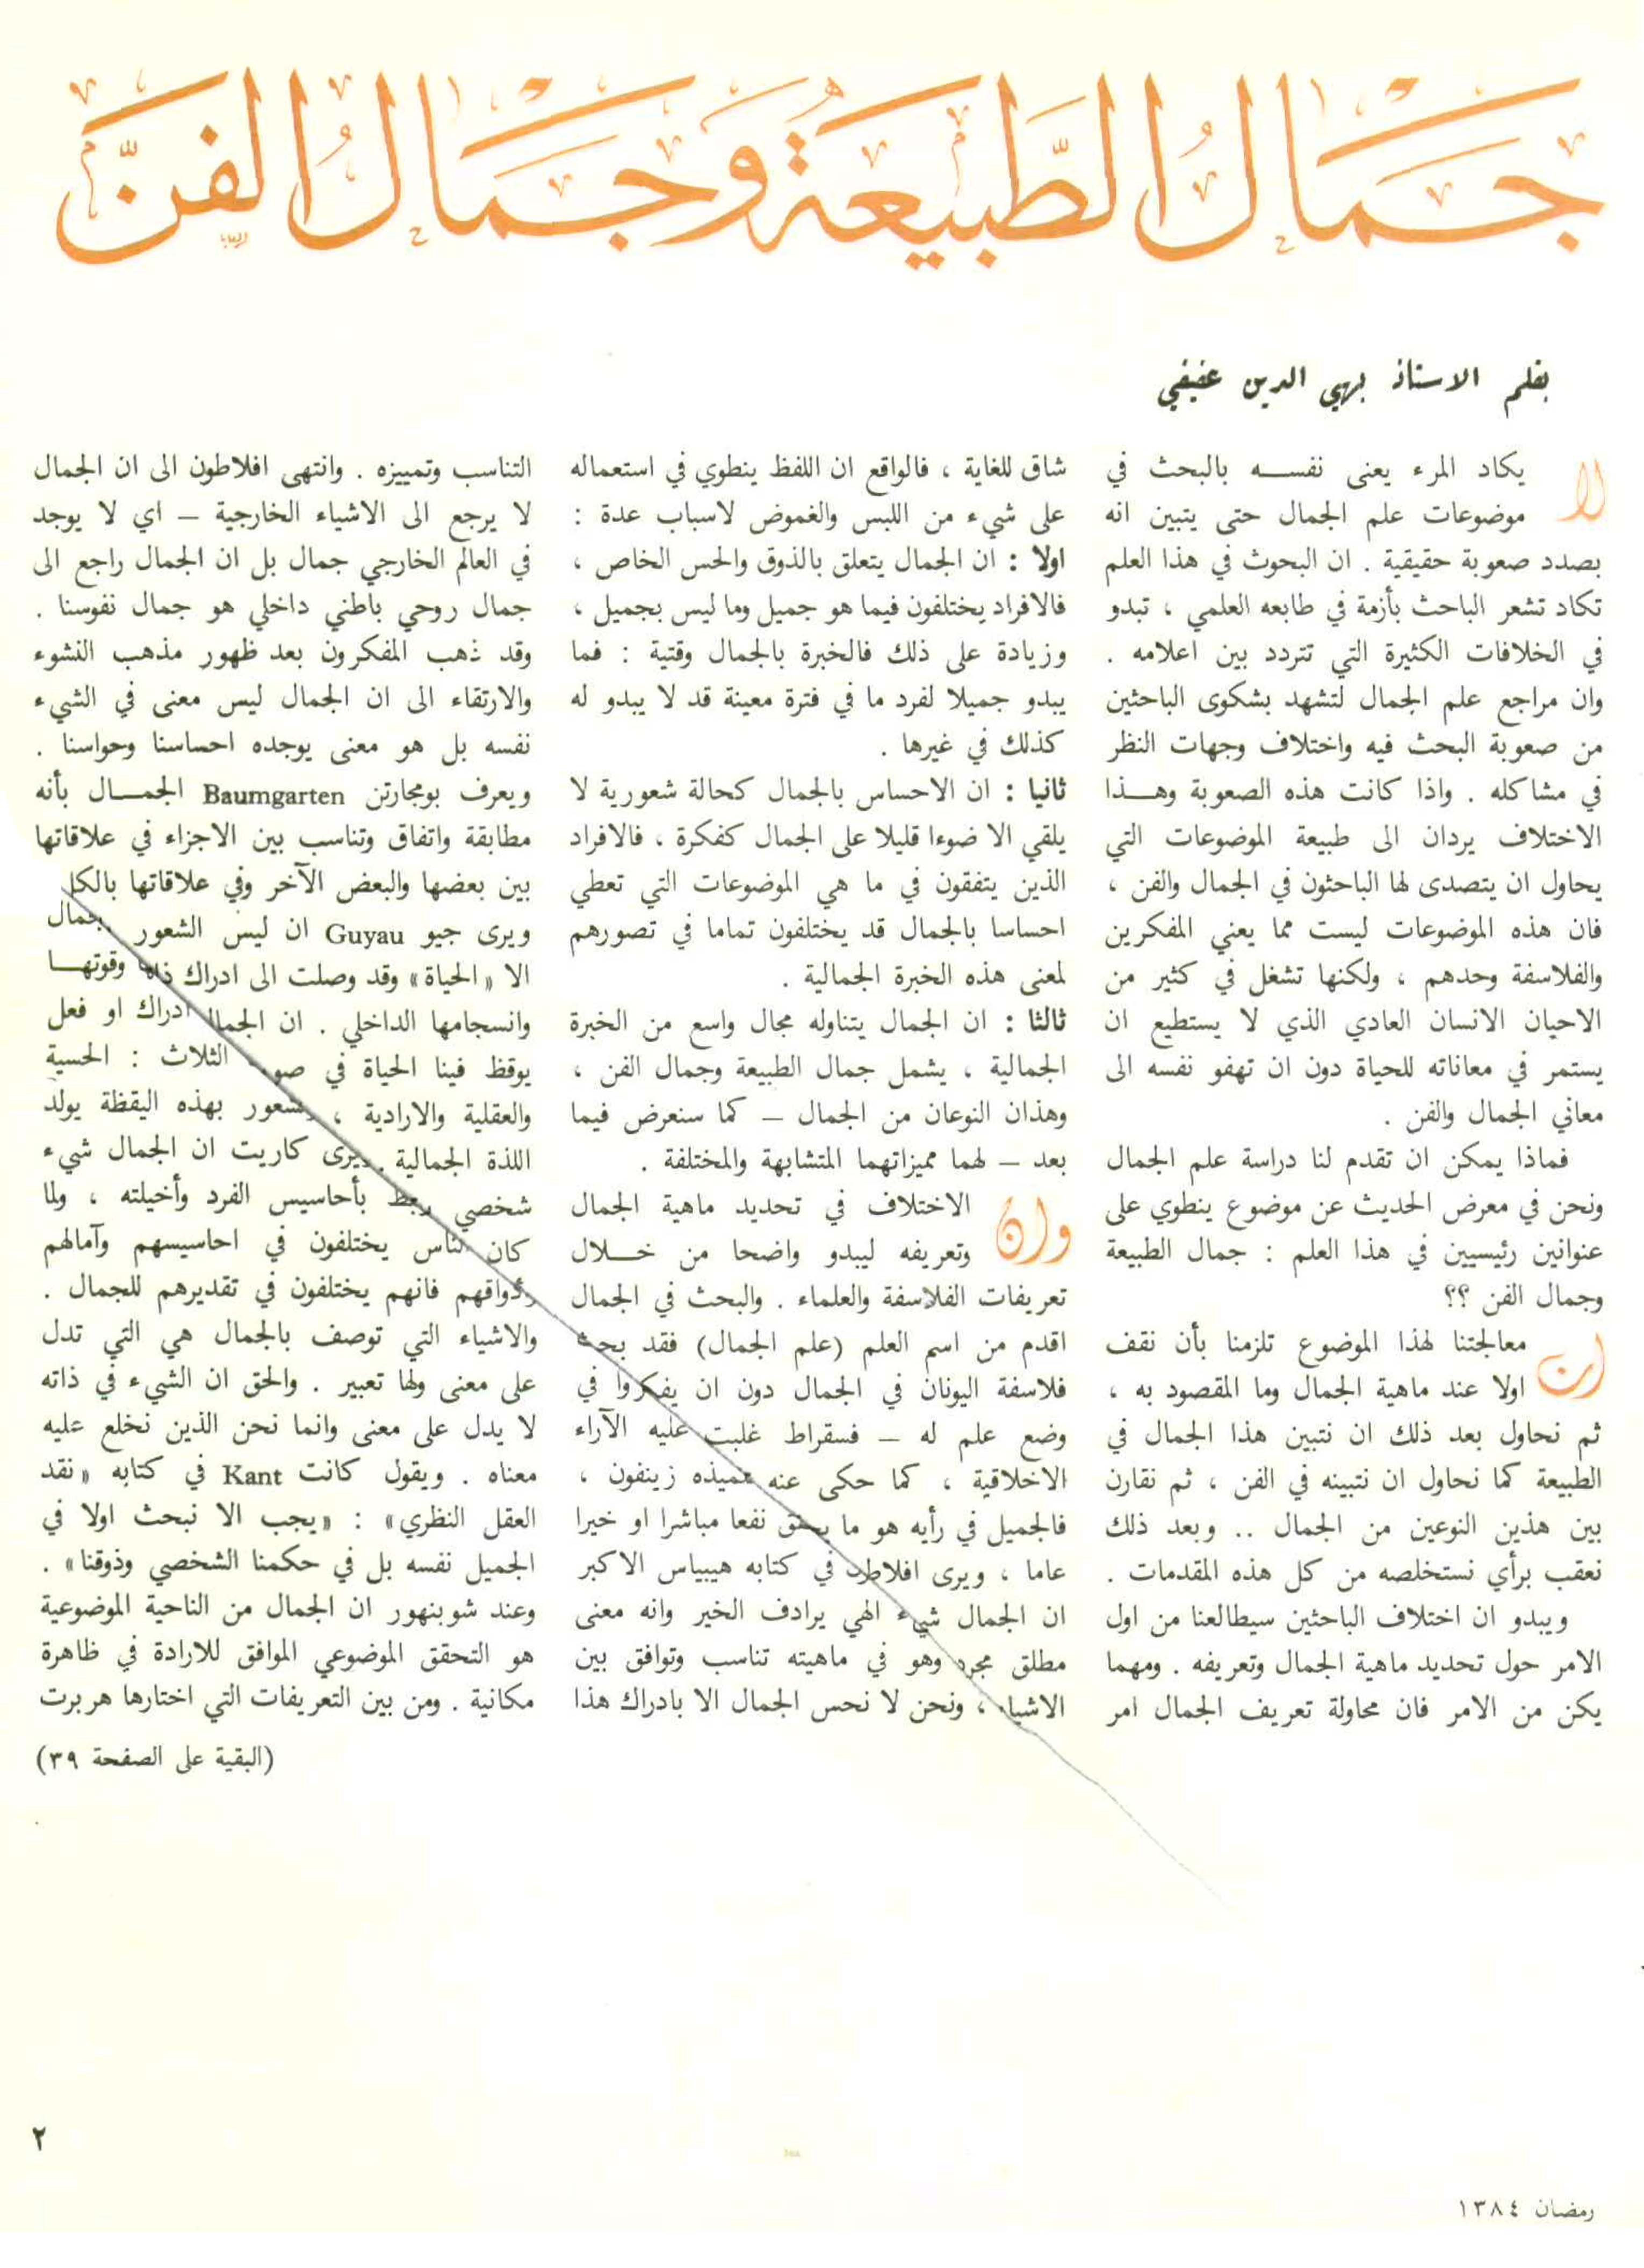 جَمَالُ الطَّبيعَةِ وَجَمَالُ الفنَّ
بقلم الاستاذ بهي الدين عفيفي
لا يكاد المرء يعنى نفسه بالبحث في
موضوعات علم الجمال حتى يتبين انه
بصدد صعوبة حقيقية . ان البحوث في هذا العلم
تكاد تشعر الباحث بأزمة في طابعه العلمي ، تبدو
في الخلافات الكثيرة التي تتردد بين اعلامه .
وان مراجع علم الجمال لتشهد بشكوى الباحثين
من صعوبة البحث فيه واختلاف وجهات النظر
في مشاكله . واذا كانت هذه الصعوبة وهذا
الاختلاف يردان الى طبيعة الموضوعات التي
يحاول ان يتصدى لها الباحثون في الجمال والفن ،
فان هذه الموضوعات ليست مما يعني المفكرين
والفلاسفة وحدهم ، ولكنها تشغل في كثير من
الاحيان الانسان العادي الذي لا يستطيع ان
يستمر في معاناته للحياة دون ان تهفو نفسه الى
معاني الجمال والفن .
فماذا يمكن ان تقدم لنا دراسة علم الجمال
ونحن في معرض الحديث عن موضوع ينطوي على
عنوانين رئيسيين في هذا العلم : جمال الطبيعة
وجمال الفن ؟؟
ان معالجتنا لهذا الموضوع تلزمنا بأن نقف
اولا عند ماهية الجمال وما المقصود به ،
ثم نحاول بعد ذلك ان نتبين هذا الجمال في
الطبيعة كما نحاول ان نتبينه في الفن ، ثم نقارن
بين هذين النوعين من الجمال .. وبعد ذلك
نعقب برأي نستخلصه من كل هذه المقدمات .
ويبدو ان اختلاف الباحثين سيطالعنا من اول
الامر حول تحديد ماهية الجمال وتعريفه . ومهما
يكن من الامر فان محاولة تعريف الجمال امر
شاق للغاية ، فالواقع ان اللفظ ينطوي في استعماله
على شيء من اللبس والغموض لاسباب عدة :
اولا : ان الجمال يتعلق بالذوق والحس الخاص ،
فالافراد يختلفون فيما هو جميل وما ليس بجميل ،
وزيادة على ذلك فالخبرة بالجمال وقتية : فما
يبدو جميلا لفرد ما في فترة معينة قد لا يبدو له
كذلك في غيرها .
ثانيا : ان الاحساس بالجمال كحالة شعورية لا
يلقي الا ضوءا قليلا على الجمال كفكرة ، فالافراد
الذين يتفقون في ما هي الموضوعات التي تعطي
احساسا بالجمال قد يختلفون تماما في تصورهم
لمعنى هذه الخبرة الجمالية .
ثالثا : ان الجمال يتناوله مجال واسع من الخبرة
الجمالية ، يشمل جمال الطبيعة وجمال الفن ،
وهذان النوعان من الجمال – كما سنعرض فيما
بعد – لهما مميزاتهما المتشابهة والمختلفة .
وان الاختلاف في تحديد ماهية الجمال
وتعريفه ليبدو واضحا من خلال
تعريفات الفلاسفة والعلماء . والبحث في الجمال
اقدم من اسم العلم (علم الجمال) فقد بحث
فلاسفة اليونان في الجمال دون ان يفكروا في
وضع علم له – فسقراط غلبت عليه الآراء
الاخلاقية ، كما حكى عنه تلميذه زينفون ،
فالجميل في رأيه هو ما يحقق نفعا مباشرا او خيرا
عاما ، ويرى افلاطون في كتابه هيبياس الاكبر
ان الجمال شيء الهي يرادف الخير وانه معنى
مطلق مجرد وهو في ماهيته تناسب وتوافق بين
الاشياء ، ونحن لا نحس الجمال الا بادراك هذا
التناسب وتمييزه . وانتهى افلاطون الى ان الجمال
لا يرجع الى الاشياء الخارجية – اي لا يوجد
في العالم الخارجي جمال بل ان الجمال راجع الى
جمال روحي باطني داخلي هو جمال نفوسنا .
وقد ذهب المفكرون بعد ظهور مذهب النشوء
والارتقاء الى ان الجمال ليس معنى في الشيء
نفسه بل هو معنى يوجده احساسنا وحواسنا .
ويعرف بومجارتن Baumgarten الجمال بأنه
مطابقة واتفاق وتناسب بين الاجزاء في علاقاتها
بين بعضها والبعض الآخر وفي علاقاتها بالكل
ويرى جيو Guyau ان ليس الشعور بجمال
الا «الحياة» وقد وصلت الى ادراك ذاتها وقوتها
وانسجامها الداخلي . ان الجمال ادراك او فعل
يوقظ فينا الحياة في صورها الثلاث : الحسية
والعقلية والارادية ، والشعور بهذه اليقظة يولد
اللذة الجمالية . ويرى كاريت ان الجمال شيء
شخصي يربط بأحاسيس الفرد وأخيلته ، ولما
كان الناس يختلفون في احاسيسهم وآمالهم
وأذواقهم فانهم يختلفون في تقديرهم للجمال .
والاشياء التي توصف بالجمال هي التي تدل
على معنى ولها تعبير . والحق ان الشيء في ذاته
لا يدل على معنى وانما نحن الذين نخلع عليه
معناه . ويقول كانت Kant في كتابه «نقد
العقل النظري» : «يجب الا نبحث اولا في
الجميل نفسه بل في حكمنا الشخصي وذوقنا» .
وعند شوبنهور ان الجمال من الناحية الموضوعية
هو التحقق الموضوعي الموافق للارادة في ظاهرة
مكانية . ومن بين التعريفات التي اختارها هربرت
(البقية على الصفحة ٣٩)
٢
رمضان ١٣٨٤